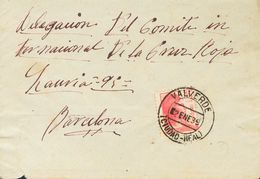 Delegacion D'el Comite in
ternacional De la Cruz Roja
Lauria=95=
Barcelona
VALVERDE
ENE 39
(CIUDAD-REAL)